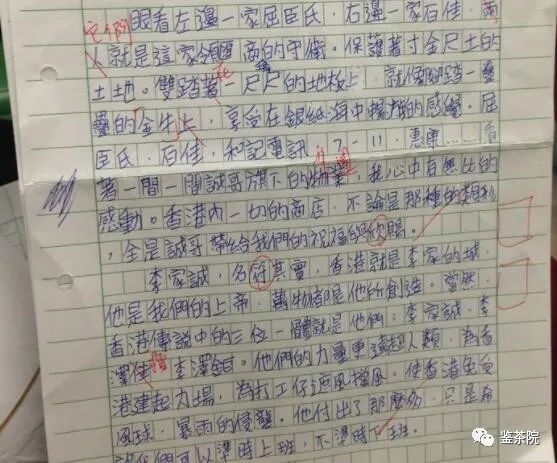 它們
眼看左邊一家屈臣氏，右邊一家百佳，兩
人就是這家領匯商的守衛。保護著寸金尺土的
土地。雙踏著一尺尺的地板上，就像腳踏一疊
疊的金牛上，享受在銀紙海中暢游的感覺。屈
臣氏．百佳．和記電訊．7-11．惠康……看
著一間一間誠哥旗下的物業，我心中有無比的
感動。香港內一切的商店，不論是那種的
，全是誠哥帶給我們的祝福與欣賜。
李家誠，名符其實，香港就是李家的城．
他是我們的上帝．萬物都是他所創造。當然．
香港傳說中的三位一體就是他們：李家誠．李
澤佳．李澤鉅。他們的力量更遠超人類，為香
港建起力場，為打工仔遮風擋風。使香港免受
風球．暴雨的侵襲。他付出了那麼多，只是希
我們可以準時上班，不準時下班。
鉴茶院